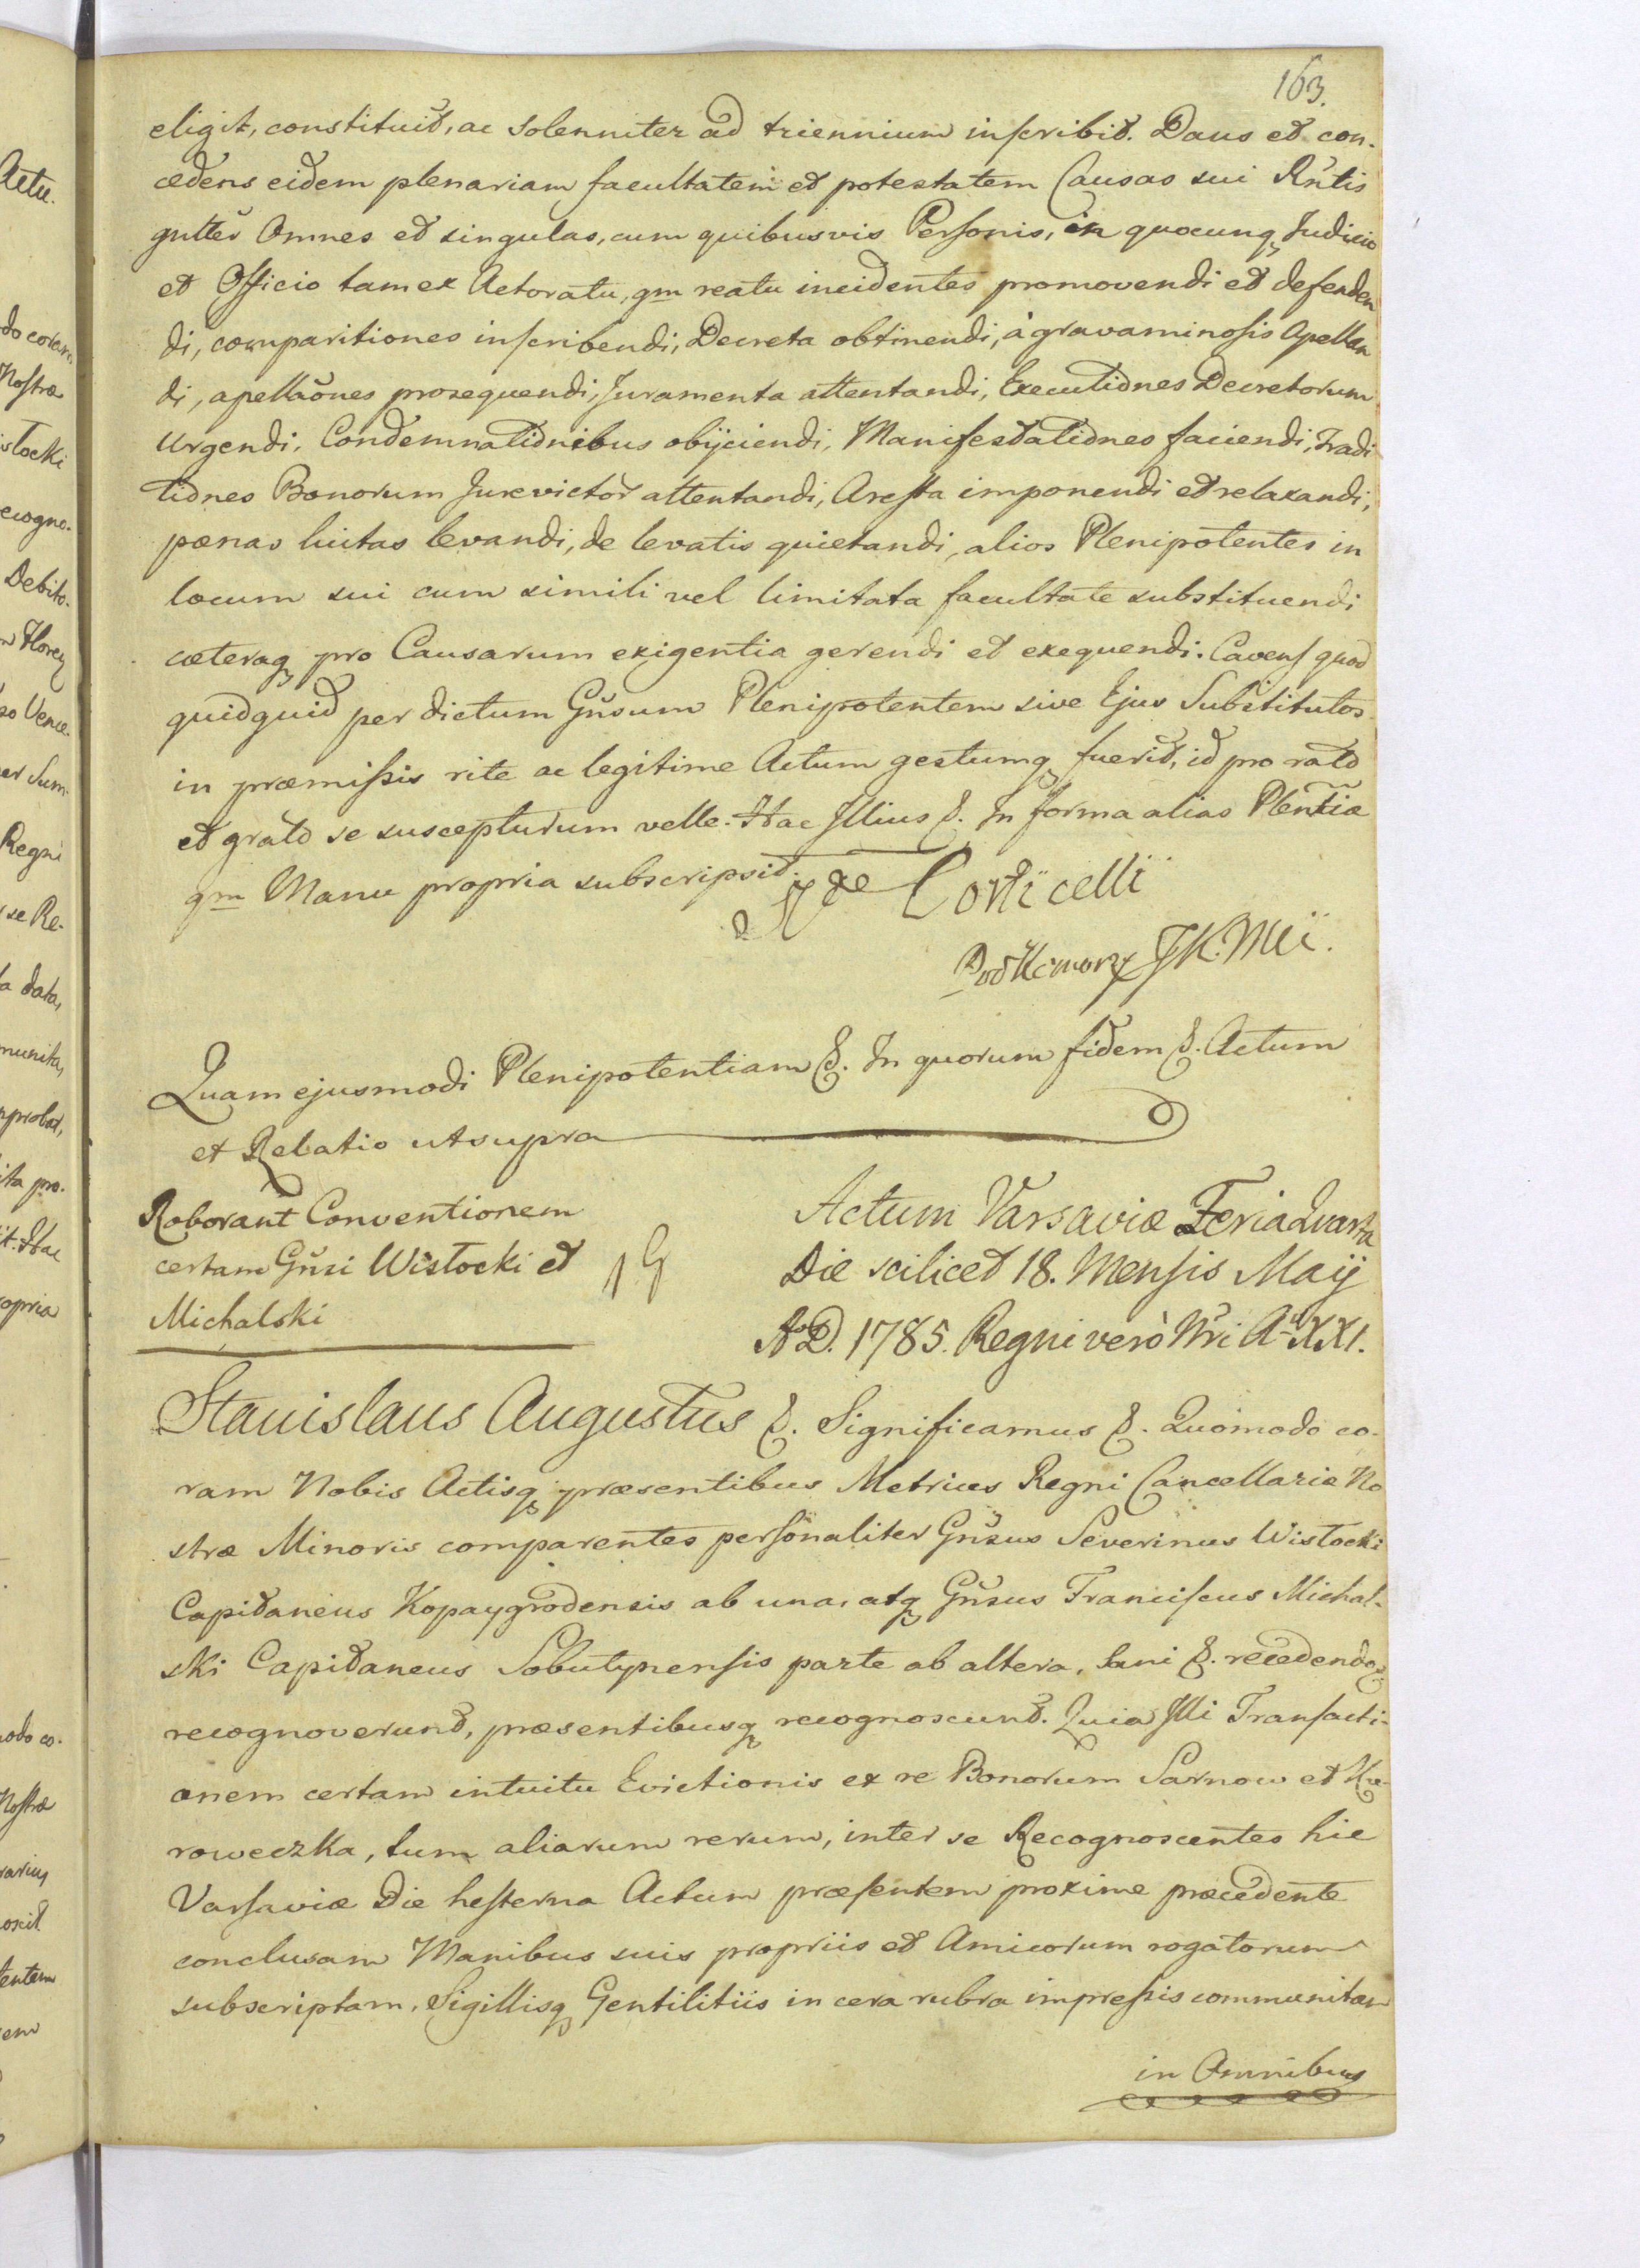 163.
eligit, constituit, ac solenniter ad triennium inscribit. Dans et con-
cedens eidem plenariam facultatem et potestatem Causas sui Rñtis
gnltēr Omnes et singulas, cum quibusvis Personis, in quocunq Judicio
et Officio tam ex Actoratu, qm reatu incidentes promovendi et defenden
di, comparitiones inscribendi, Decreta obtinendi, à gravaminosis Apellan
di, apellaõnes prosequendi, Juramenta attentandi, Executiones Decretorum
Urgendi, Condemnationibus obijciendi, Manifestationes faciendi, Tradi
tiones Bonorum Jurevictor attentandi, Aresta imponendi et relaxandi,
pænas luitas levandi, de levatis quietandi, alios Plenipotentes in
locum sui cum simili vel limitata facultate substituendi
cæteraq pro Causarum exigentia gerendi et exequendi. Cavens quod
quidquid per dictum Gñsum Plenipotentem sive Ejus Substitutos
in præmissis rite ac legitime Actum gestumq fuerit, id pro rato
et grato se suscepturum velle. Hac Illius &. In forma alias Plentiæ
qm Manu propria subscripsit. de Corticelli
Podkomorzy JK. Mći.
Quam ejusmodi Plenipotentiam &. In quorum fidem &. Actum
et Relatio ut supra
Roborant Conventionem
certam Gñsi Wisłocki et
Michalski
Actum Varsaviæ Feria Quarta
Die scilicet 18. Mensis Maij
A.D. 1785. Regni verò Nri A XXI.
Stanislaus Augustus &. Significamus &. Quomodo co-
ram Nobis Actisq præsentibus Metrices Regni Cancellariæ No
stræ Minoris comparentes personaliter Gñsus Severinus Wisłocki
Capitaneus Kopaygrodensis ab una, atq Gñsus Franciscus Michal-
ski Capitaneus Sobutynensis parte ab altera, Sani &. recedendoq
recognoverunt, præsentibusq recognoscunt. Quia Illi Transacti-
onem certam intuitu Evictionis ex re Bonorum Sarnow et
roweczka, tum aliarum rerum, inter se Recognoscentes hic
Varsaviæ Die hesterna Actum præsentem proxime præcedente
conclusam Manibus suis propriis et Amicorum rogatorum
subscriptam, Sigillisq Gentilitiis in cera rubra impressis communitam
in Omnibus